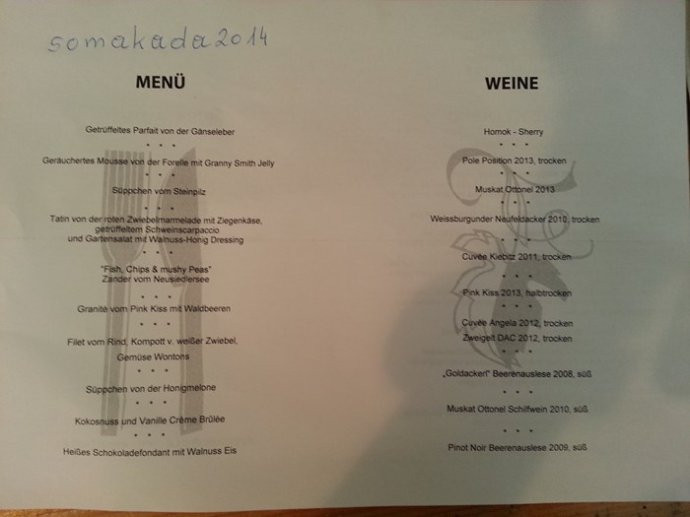 somakada2014
MENÜ
Getrüffeltes Parfait von der Gänseleber
* * *
Geräuchertes Mousse von der Forelle mit Granny Smith Jelly
* * *
Süppchen vom Steinpilz
* * *
Tatin von der roten Zwiebelmarmelade mit Ziegenkäse,
getrüffeltem Schweinscarpaccio
und Gartensalat mit Walnuss-Honig Dressing
* * *
"Fish, Chips & mushy Peas"
Zander vom Neusiedlersee
* * *
Granité vom Pink Kiss mit Waldbeeren
* * *
Filet vom Rind, Kompott v. weißer Zwiebel,
Gemüse Wontons
* * *
Süppchen von der Honigmelone
* * *
Kokosnuss und Vanille Crème Brûlée
* * *
Heißes Schokoladefondant mit Walnuss Eis
WEINE
Homok - Sherry
* * *
Pole Position 2013, trocken
* * *
Muskat Ottonel 2013
* * *
Weissburgunder Neufeldacker 2010, trocken
* * *
Cuvée Kiebitz 2011, trocken
* * *
Pink Kiss 2013, halbtrocken
* * *
Cuvée Angela 2012, trocken
Zweigelt DAC 2012, trocken
* * *
„Goldackerl" Beerenauslese 2008, süß
* * *
Muskat Ottonel Schilfwein 2010, süß
* * *
Pinot Noir Beerenauslese 2009, süß